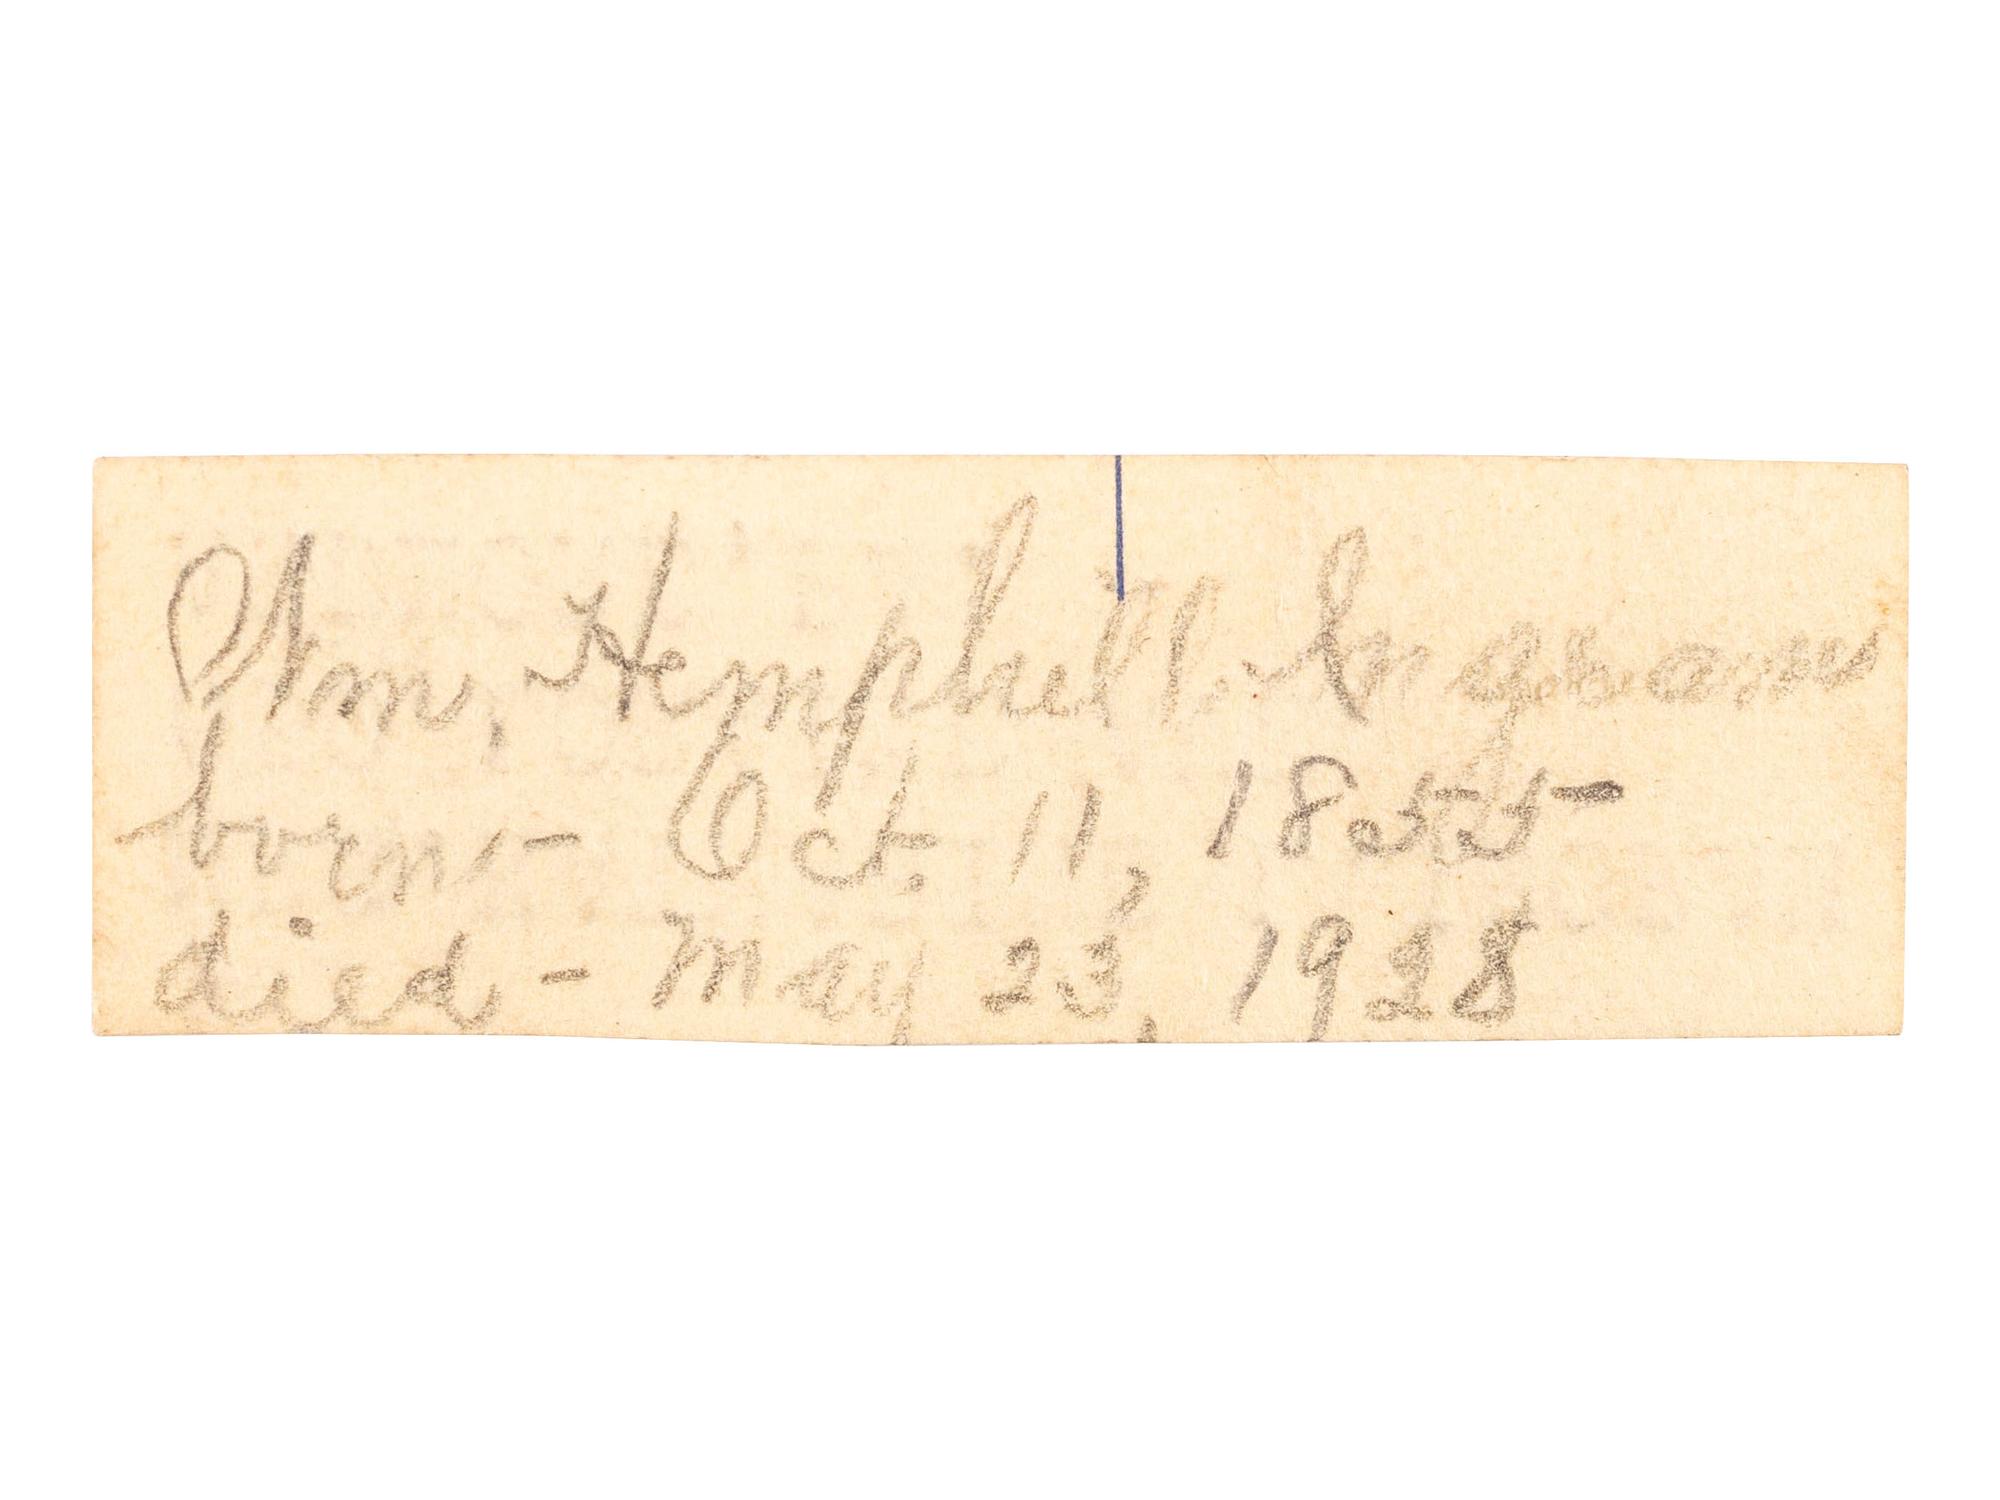 Wm. Hemphill Ingram
born - Oct. 11, 1855-
died - May 23, 1928